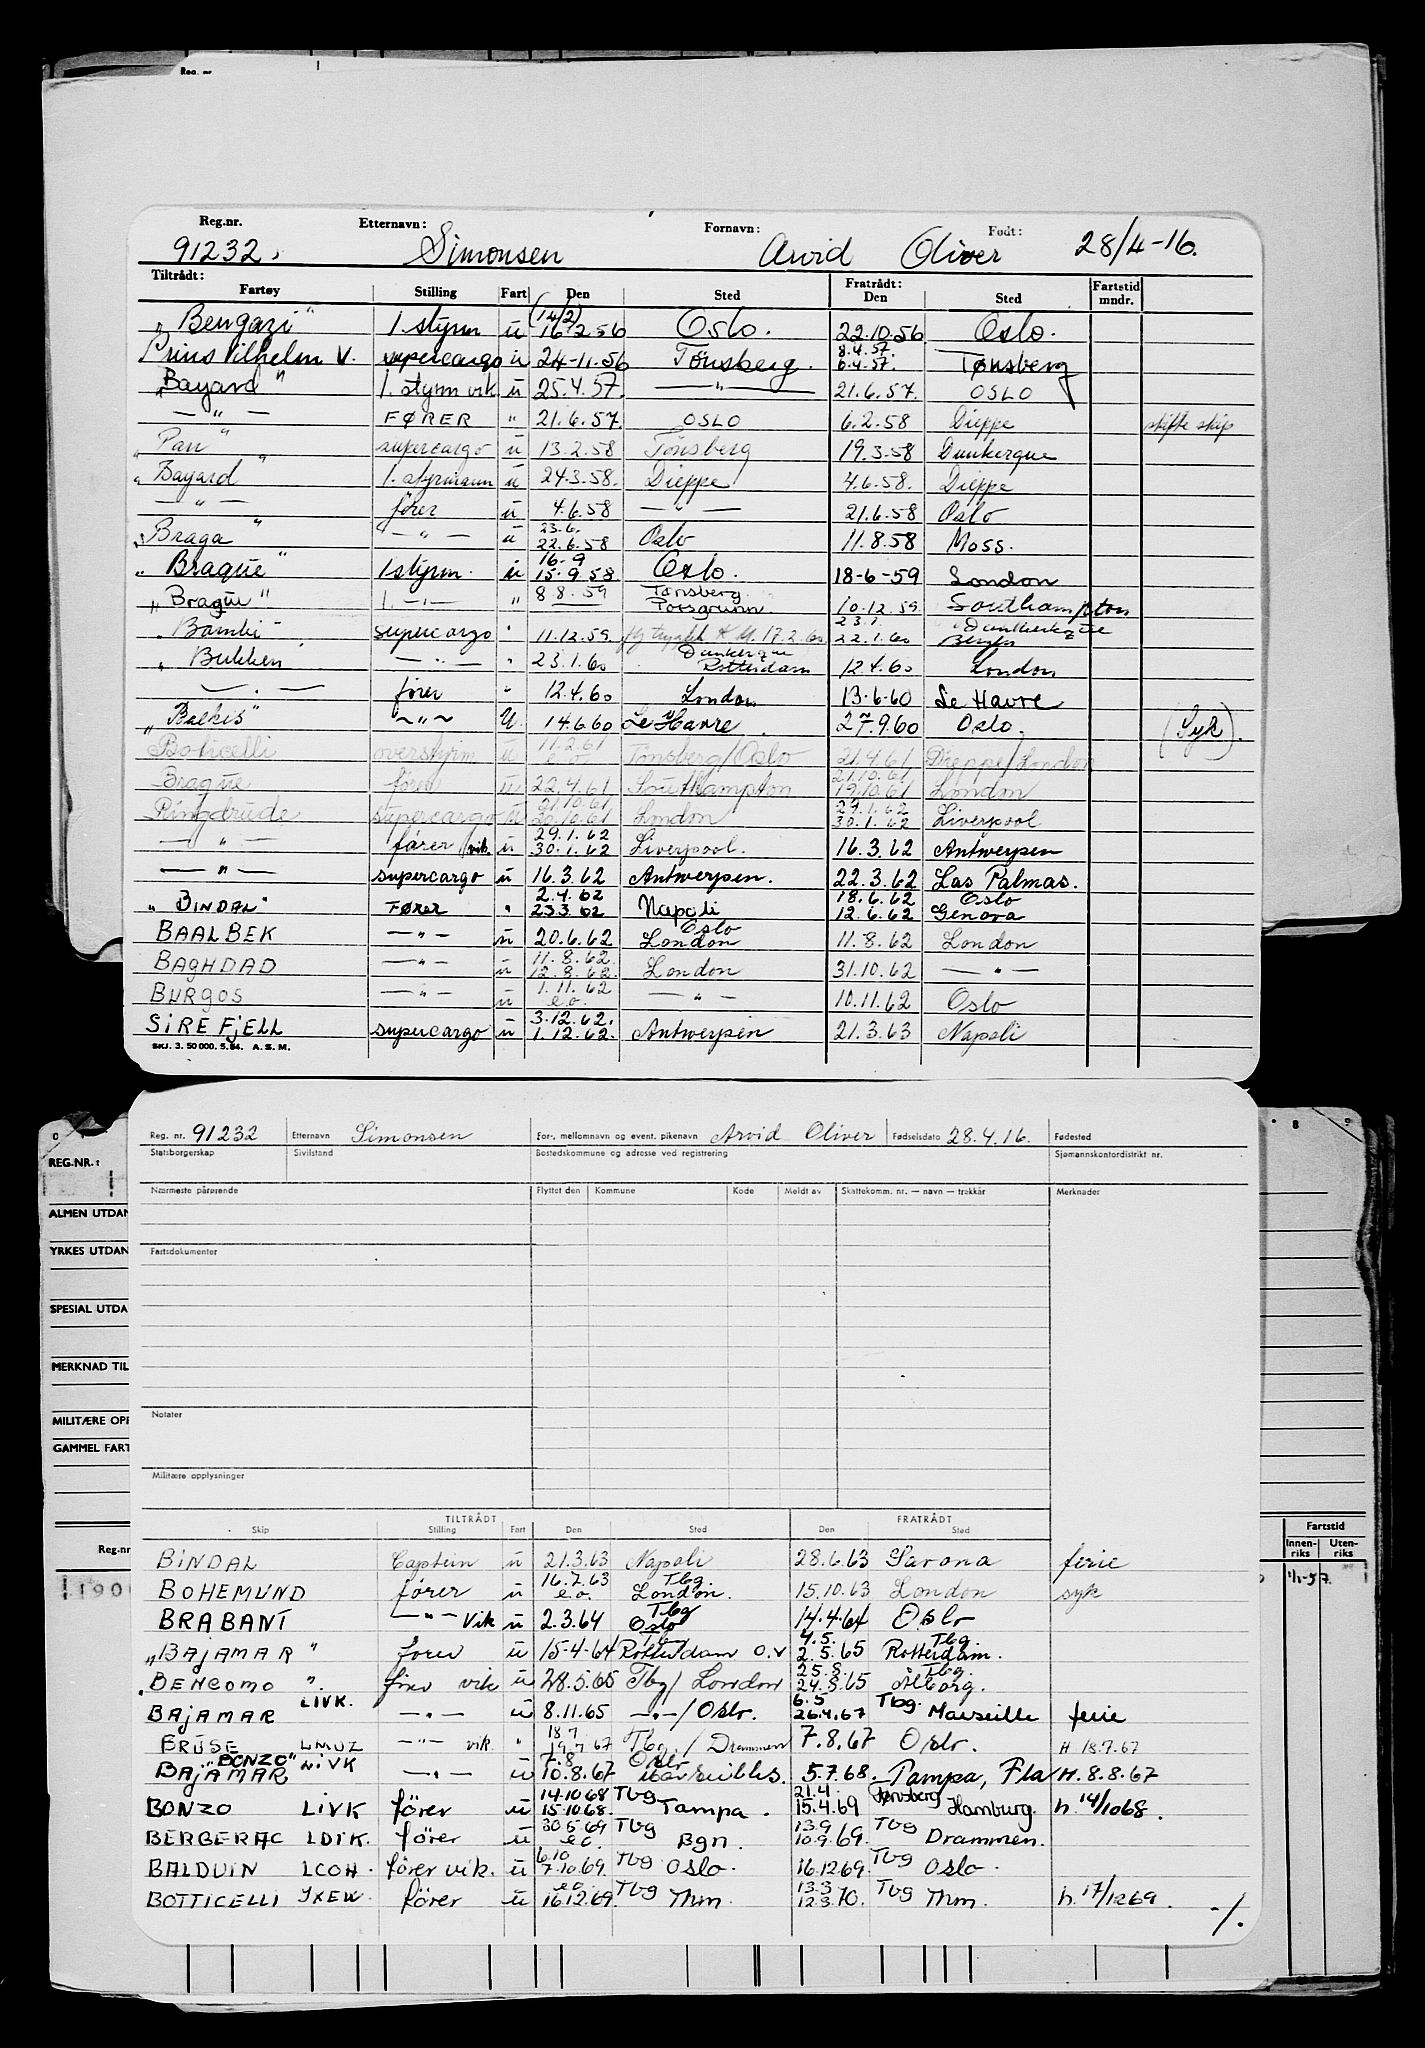 Reg. nr.
Reg.nr. Etternavn: Fornavn: Født:
91232. Simonsen Arvid Oliver 28/4-16.
Tiltrådt: Fratrådt:
Fartøy Stilling Fart Den Sted Den Sted Fartstid mndr.
(14/2)
„Bengazi" 1 styrm u 16-2.56 Oslo. 22.10.56 Oslo.
8.4.57.
Prins Vilhelm V. supercargo u 24-11.56 Tönsberg. 6.4-57. Tønsberg
„Bayard" 1. styrm vik u 25.4.57. — " — 21.6.57. OSLO
— " — FØRER " 21.6.57. OSLO 6.2.58 Dieppe skifte skip
„Pan" supercargo u 13.2.58 Tönsberg 19.3.58 Dunkerque
„Bayard" 1. styrmann u 24.3.58. Dieppe 4.6.58. Dieppe
— " — förer u 4.6.58 — " — 21.6.58 Oslo
23.6.
„Braga" — " — u 22.6.58 Oslo 11.8.58 Moss.
16-9
„Braque" 1 styrm. u 15.9.58 Oslo. 18-6-59 London
8 8.59 Tønsberg
„Brague" 1. — " — " — Porsgrunn. 10.12.59 Southampton
23.1. Dunkerque
„Bambi" supercargo " 11.12.59. 17.2.60 22.1.60
Dunkerque
„Bukken" — " — " 23.1.60 Rotterdam 12.4.60 London
— " — förer " 12.4.60 London 13-6-60 Le Havre
„Balkis" ~ " ~ U. 14.6.60 Le Havre 27.9.60 Oslo. (Syk).
11.2.61
Boticelli overstyrm u e.o. Tönsberg/Oslo 21.4.61 Dieppe/London
21.10.61
Brague förer u 22.4.61 Southampton 19.10.61 London
21.10.61 29.1.62
Ringdrude supercargo u 20.10.61 London 30.1.62 Liverpool
29.1.62
— " — förer vik. u 30.1.62 Liverpool. 16.3.62 Antwerpen
— " — supercargo u 16.3.62 Antwerpen. 22.3.62 Las Palmas.
2.4.62 18.6.62 Oslo
„BINDAL" FØRER " 23.3.62 Napoli 12.6.62 Genova
Oslo
BAALBEK — " — u 20.6.62 London 11.8.62 London
11.8.62
BAGHDAD — " — u 12.8.62. London 31.10.62 — " —
1.11.62
BURGOS — " — u e.o. — " — 10.11.62 Oslo
3.12.62.
SIREFJELL supercargo u 1.12.62. Antwerpen 21.3.63 Napoli
SKJ. 3. 50 000. 5. 54. A. S. M.
Reg. nr. 91232 Etternavn Simonsen For-, mellomnavn og event. pikenavn Arvid Oliver Fødselsdato 28.4.16. Fødested
Statsborgerskap Sivilstand Bostedskommune og adresse ved registrering Sjømannskontordistrikt nr.
Nærmeste pårørende Flyttet den Kommune Kode Meldt av Skattekomm. nr. — navn — trekkår Merknader
Fartsdokumenter
Notater
Militære opplysninger
TILTRÅDT FRATRÅDT
Skip Stilling Fart Den Sted Den Sted
BINDAL Captein u 21.3.63 Napoli 28.6.63 Savona ferie
16.7.63 Tbg
BOHEMUND förer u e.o. London. 15.10.63 London syk
Tbg
BRABANT — " — Vik u 2.3.64 Oslo 14.4.64 Oslo
4.5. Tbg
„BAJAMAR" förer u 15-4-64 Rotterdam O.V 2.5.65 Rotterdam.
25.8. Tbg.
„BENCOMO" fører vik u 28.5.65 Tbg/London 24.8.65 Ålborg.
LIVK. 6.5 Tbg.
BAJAMAR — " — u 8.11.65 — " —/Oslo. 26.4.67 Marseille ferie
18.7
BRUSE LMUZ — " — vik. " 19.7.67 Tbg./Drammen 7.8.67 Oslo. H 18.7.67
"BONZO" 7.8 Oslo
BAJAMAR LIVK — " — u 10.8.67 Marseilles. 5.7.68. Tampa, Fla H. 8.8.67
14.10 68 Tbg 21.4. Tønsberg
BONZO LIVK förer u 15.10.68. Tampa. 15.4.69 Hamburg. h. 14/10 68.
30.5.69 Tbg 13.9 Tbg
BERGERAC LDIK. förer u e.o. Bgn. 10.9.69. Drammen.
6.10 Tbg
BALDUIN LCOH. förer vik. u 7.10.69. Oslo. 16.12.69. Tbg Oslo.
e.o. 13.3
BOTTICELLI JXEW. förer u 16.12.69. Tbg Thm. 12.3.70. Tbg Thm. h. 17/12 69.
-/.
REG.NR.:
ALMEN UTDAN
YRKES UTDAN
SPESIAL UTDA
MERKNAD TIL
MILITÆRE OPP
GAMMEL FART
Reg.nr
Fartstid
Innenriks Utenriks
1/1-57.